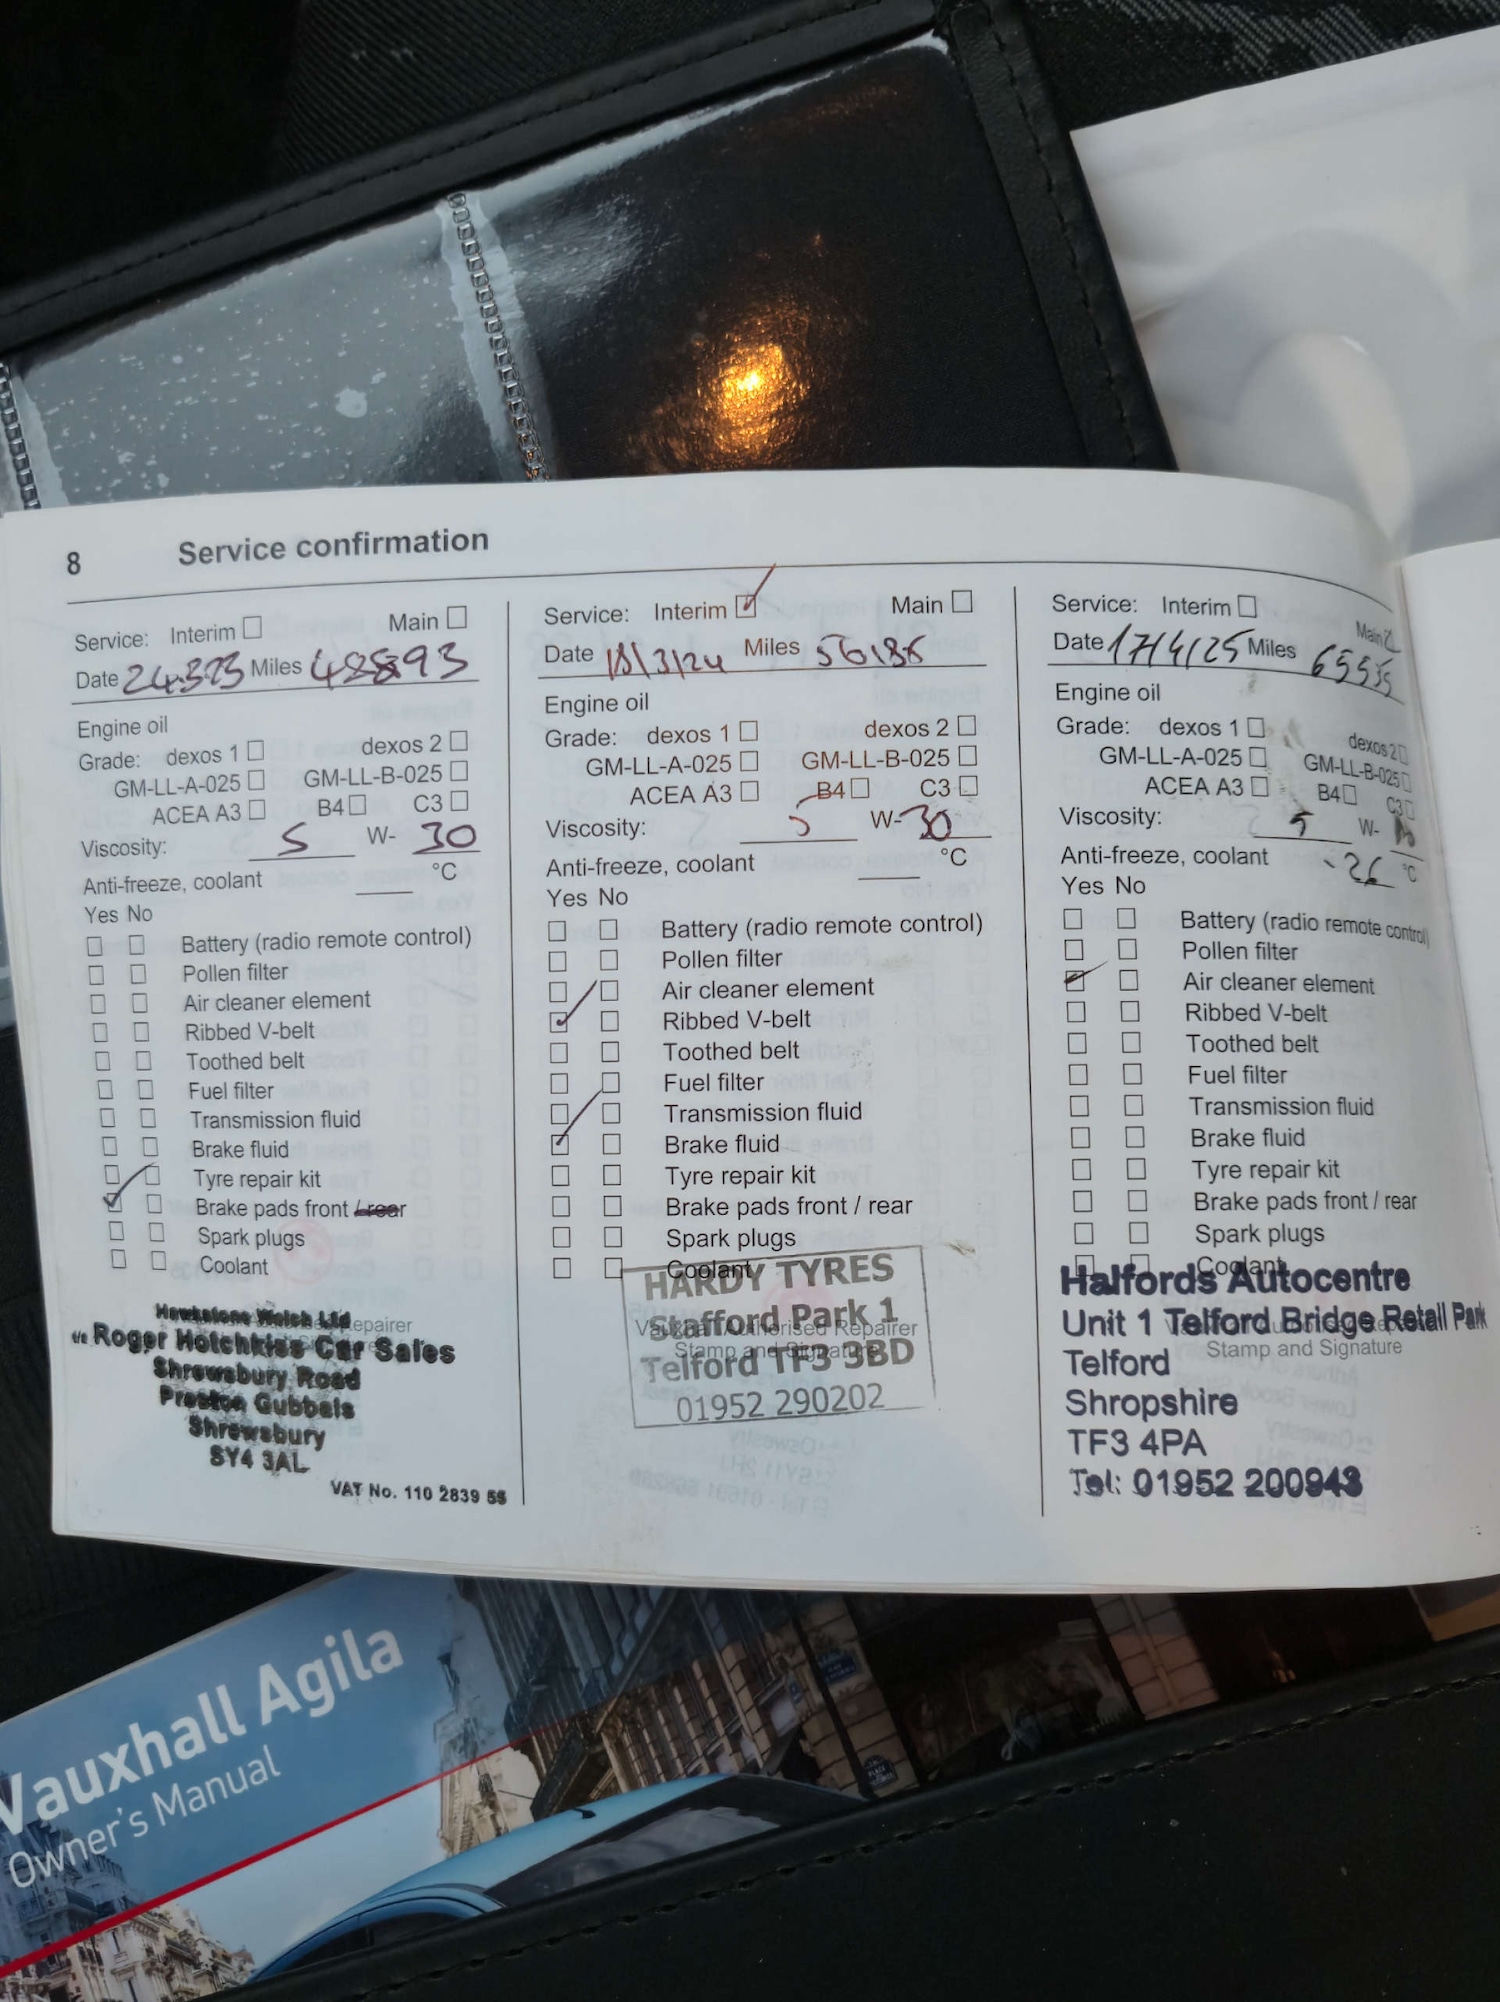 8 Service confirmation
Service: Interim Main
Date 24.3.23 Miles 48893
Engine oil
Grade: dexos 1 dexos 2
GM-LL-A-025 GM-LL-B-025
ACEA A3 B4 C3
Viscosity: 5 W- 30
Anti-freeze, coolant °C
Yes No
Battery (radio remote control)
Pollen filter
Air cleaner element
Ribbed V-belt
Toothed belt
Fuel filter
Transmission fluid
Brake fluid
Tyre repair kit
Brake pads front / rear
Spark plugs
Coolant
Hawkstone Welch Ltd
Repairer
t/a Roger Hotchkiss Car Sales
Shrewsbury Road
Preston Gubbals
Shrewsbury
SY4 3AL
VAT No. 110 2839 55
Service: Interim Main
Date 18/3/24 Miles 56,186
Engine oil
Grade: dexos 1 dexos 2
GM-LL-A-025 GM-LL-B-025
ACEA A3 B4 C3
Viscosity: 5 W- 30
Anti-freeze, coolant °C
Yes No
Battery (radio remote control)
Pollen filter
Air cleaner element
Ribbed V-belt
Toothed belt
Fuel filter
Transmission fluid
Brake fluid
Tyre repair kit
Brake pads front / rear
Spark plugs
Coolant
HARDY TYRES
Stafford Park 1
Vauxhall Authorised Repairer
Stamp and Signature
Telford TF3 3BD
01952 290202
Service: Interim Main
Date 17/4/25 Miles 65535
Engine oil
Grade: dexos 1 dexos 2
GM-LL-A-025 GM-LL-B-025
ACEA A3 B4 C3
Viscosity: 5 W-
Anti-freeze, coolant -26 °C
Yes No
Battery (radio remote control)
Pollen filter
Air cleaner element
Ribbed V-belt
Toothed belt
Fuel filter
Transmission fluid
Brake fluid
Tyre repair kit
Brake pads front / rear
Spark plugs
Coolant
Halfords Autocentre
Unit 1 Telford Bridge Retail Park
Stamp and Signature
Telford
Shropshire
TF3 4PA
Tel: 01952 200943
Vauxhall Agila
Owner's Manual